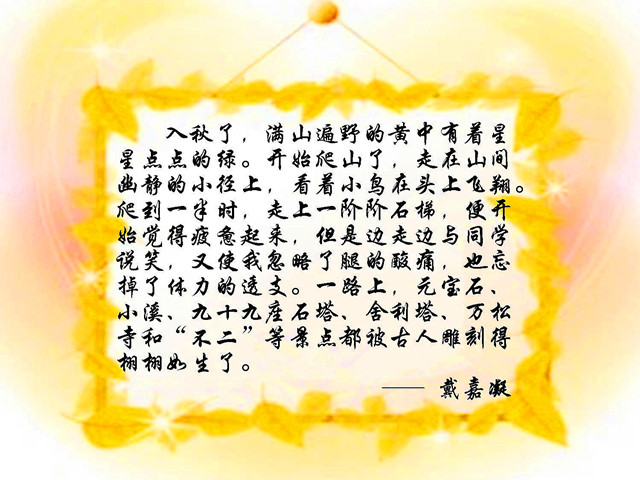 入秋了，满山遍野的黄中有着星
星点点的绿。开始爬山了，走在山间
幽静的小径上，看着小鸟在头上飞翔。
爬到一半时，走上一阶阶石梯，便开
始觉得疲惫起来，但是边走边与同学
说笑，又使我忽略了腿的酸痛，也忘
掉了体力的透支。一路上，元宝石、
小溪、九十九座石塔、舍利塔、万松
寺和“不二”等景点都被古人雕刻得
栩栩如生了。
—— 戴嘉凝